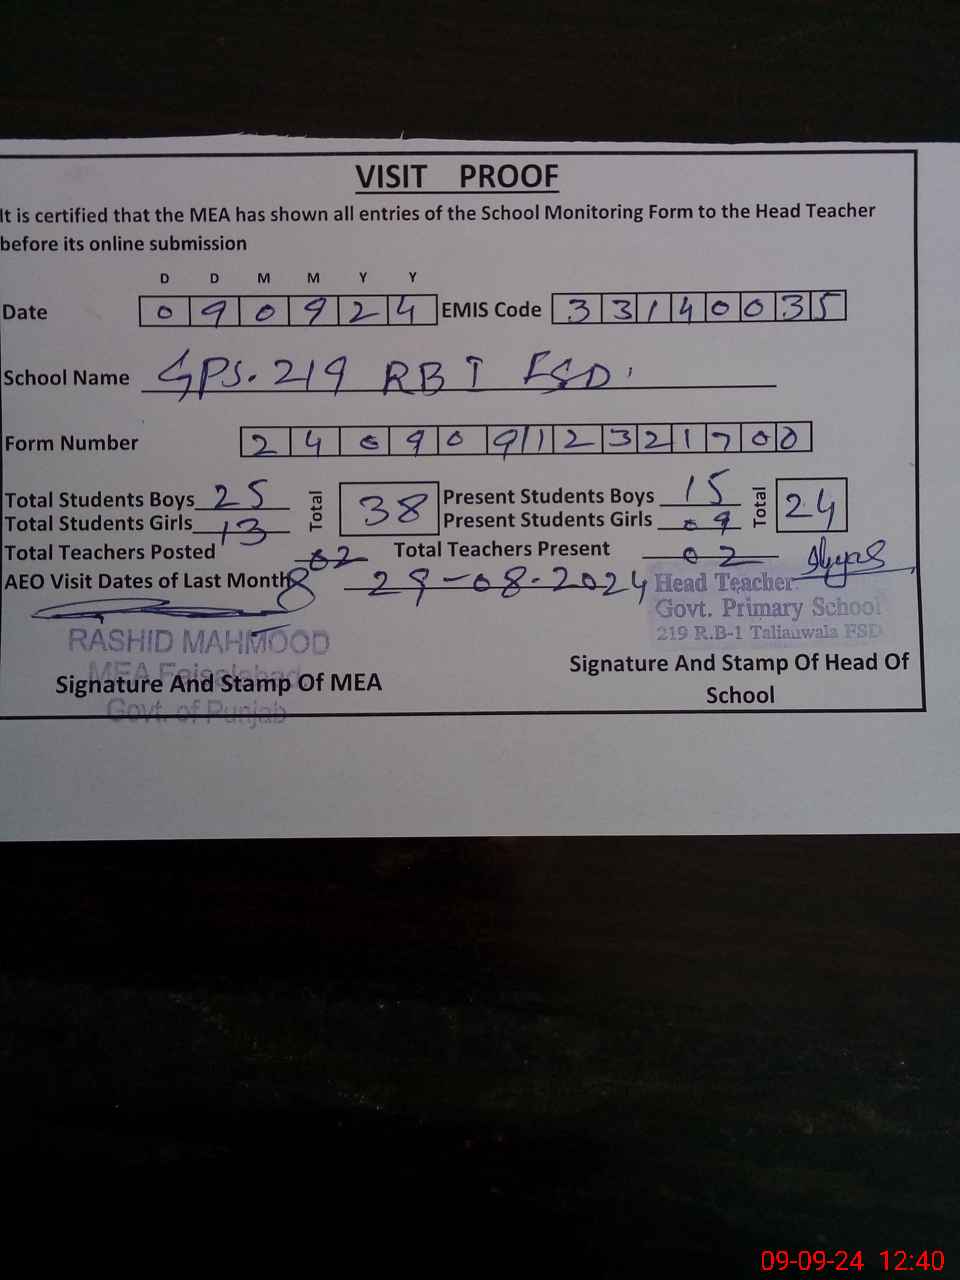 VISIT PROOF
It is certified that the MEA has shown all entries of the School Monitoring Form to the Head Teacher
before its online submission
D D M M Y Y
Date 0 9 0 9 2 4 EMIS Code 3 3 1 4 0 0 3 5
School Name GPS. 219 RB I FSD
Form Number 2 4 0 9 0 9 1 2 3 2 1 7 0 0
Total Students Boys 25 Total 38 Present Students Boys 15 Total 24
Total Students Girls 13 Present Students Girls 09
Total Teachers Posted 02 Total Teachers Present 02
AEO Visit Dates of Last Month 29-08-2024
Head Teacher
Govt. Primary School
219 R.B-1 Talianwala FSD
RASHID MAHMOOD
MEA Faisalabad
Govt. of Punjab
Signature And Stamp Of MEA
Signature And Stamp Of Head Of
School
09-09-24 12:40